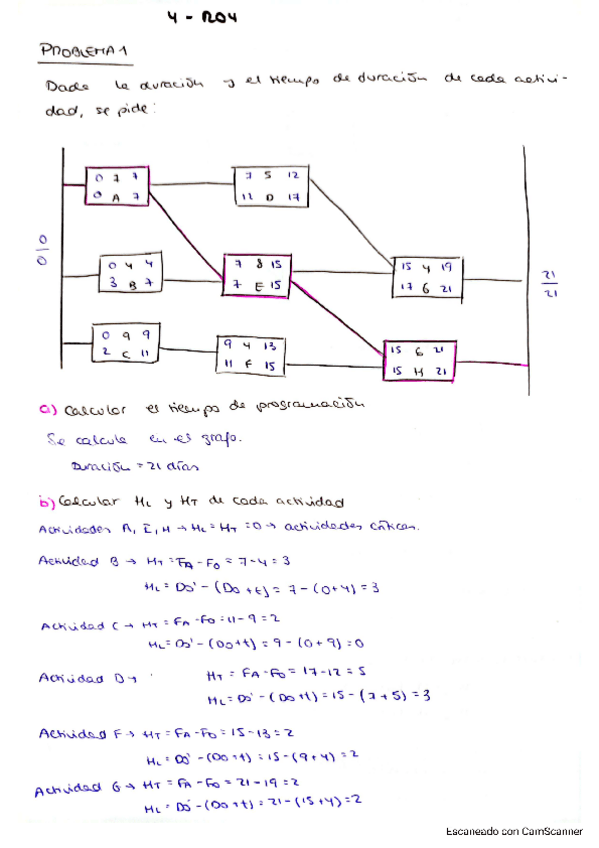 4 - ROY
PROBLEMA 1
Dada la duración y el tiempo de duración de cada activi-
dad, se pide:
0 7 7
0 A 7
7 5 12
12 D 17
0 4 4
3 B 7
7 8 15
7 E 15
15 4 19
17 G 21
0 9 9
2 C 11
9 4 13
11 F 15
15 6 21
15 H 21
0
0
21
21
a) Calcular el tiempo de programación
Se calcula en el grafo.
Duración = 21 días
b) Calcular HL y HT de cada actividad
Actividades A, E, H → HL = HT = 0 → actividades críticas.
Actividad B → HT = FA - FO = 7 - 4 = 3
HL = DO' - (DO + t) = 7 - (0 + 4) = 3
Actividad C → HT = FA - FO = 11 - 9 = 2
HL = DO' - (DO + t) = 9 - (0 + 9) = 0
Actividad D → HT = FA - FO = 17 - 12 = 5
HL = DO' - (DO + t) = 15 - (7 + 5) = 3
Actividad F → HT = FA - FO = 15 - 13 = 2
HL = DO' - (DO + t) = 15 - (9 + 4) = 2
Actividad G → HT = FA - FO = 21 - 19 = 2
HL = DO' - (DO + t) = 21 - (15 + 4) = 2
Escaneado con CamScanner